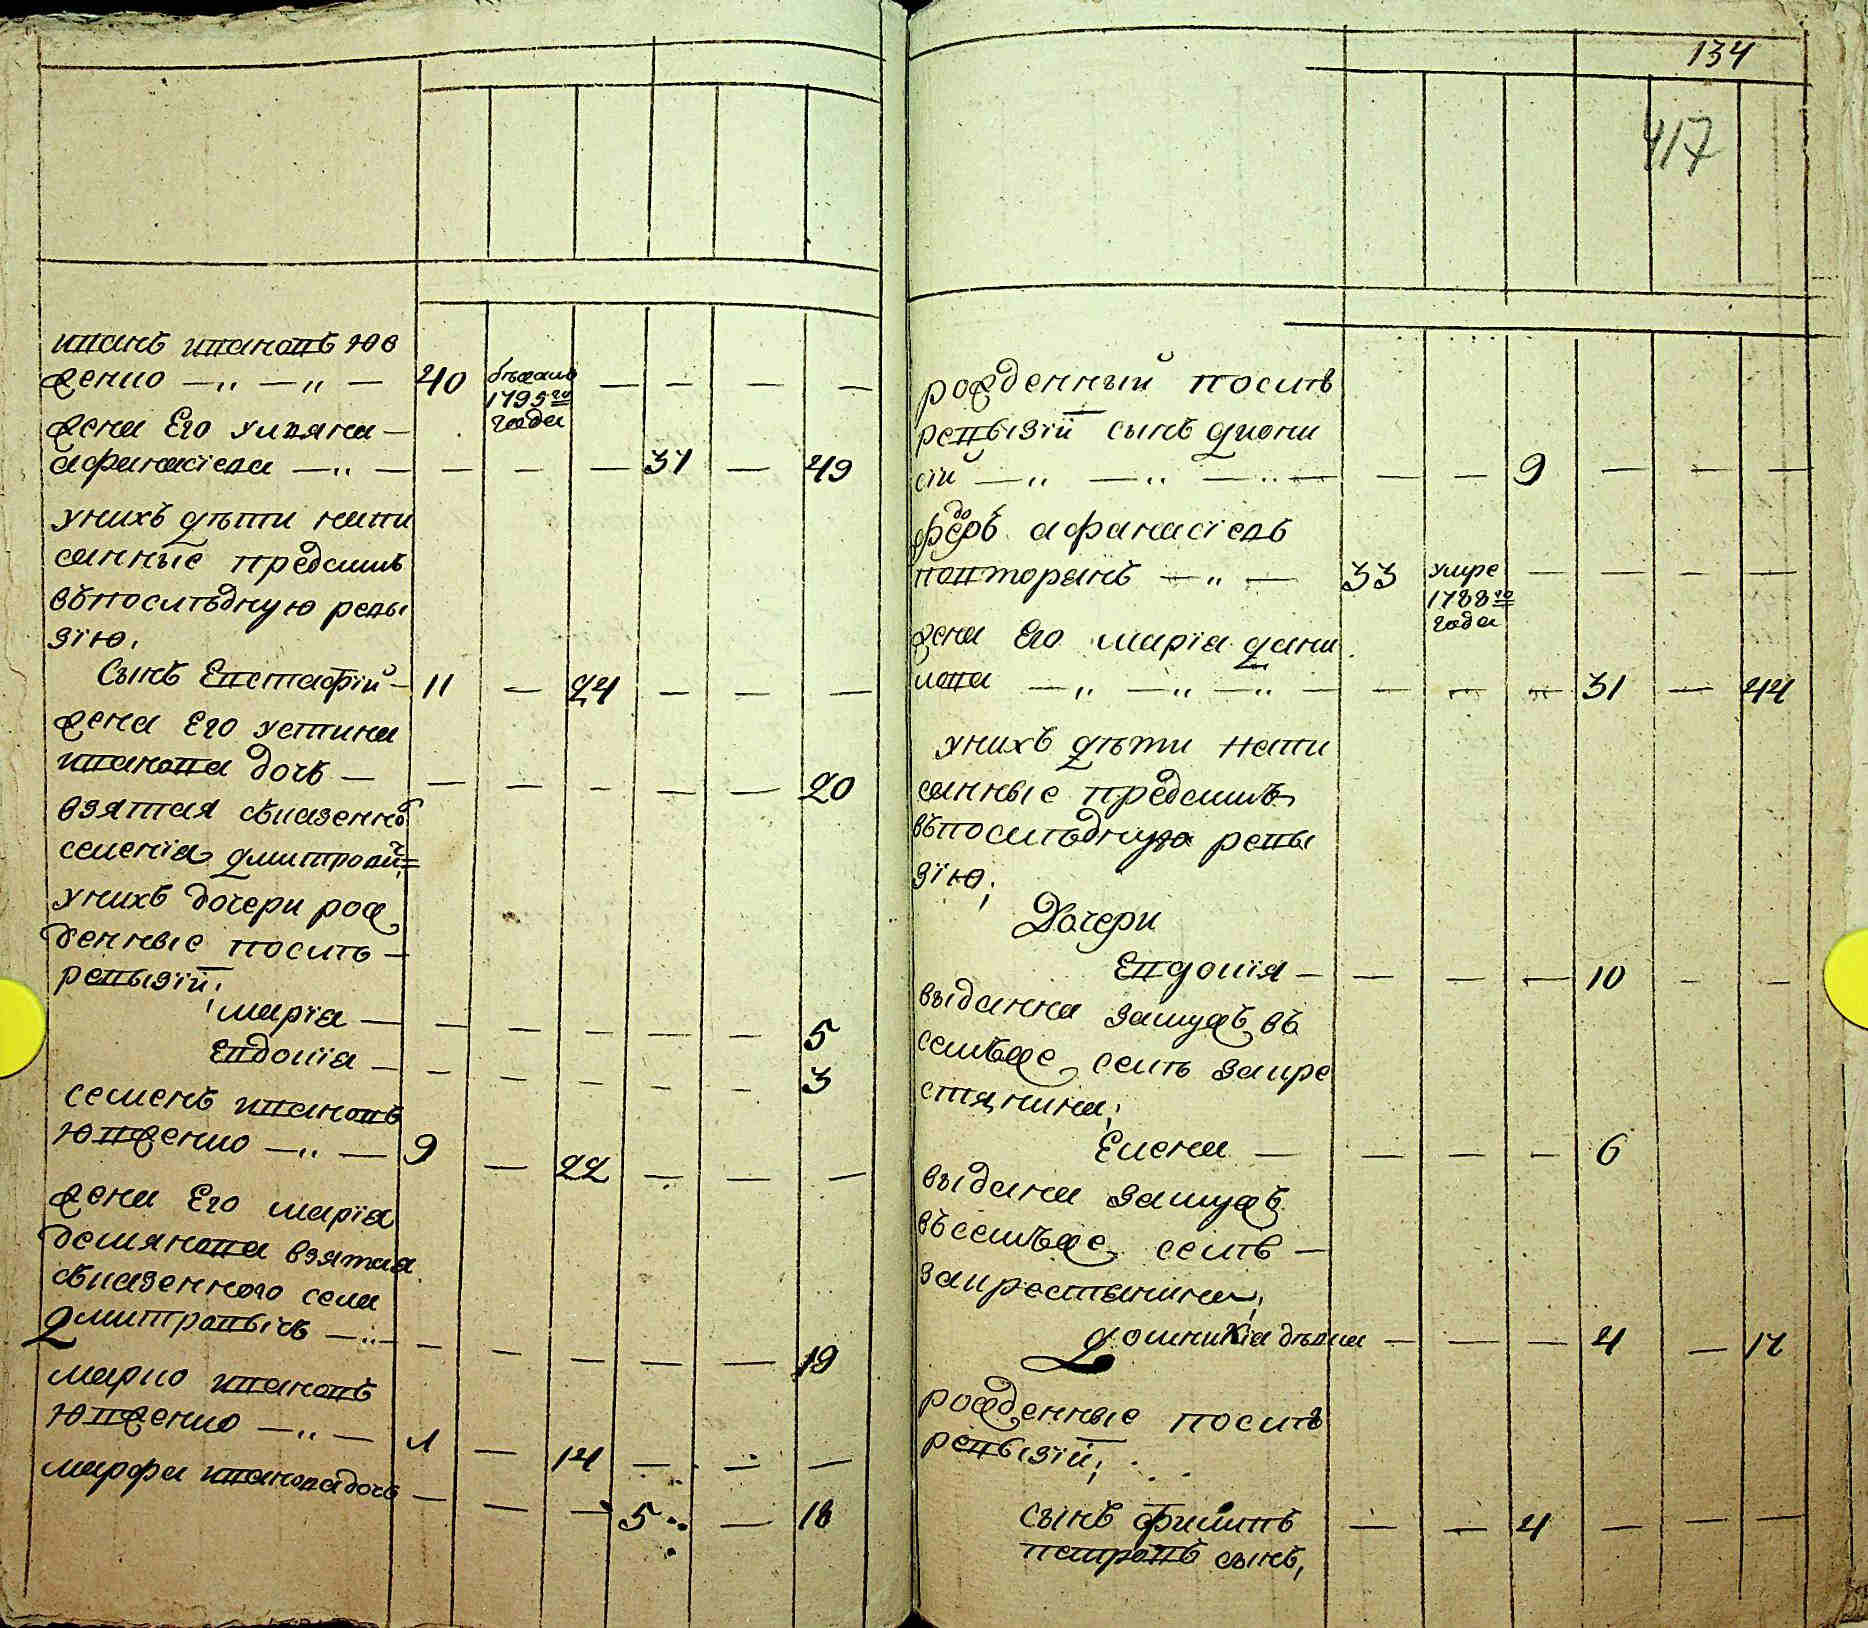 иванъ ивановъ юв
женко —„ —„ — 40 бѣжалъ — — — —
1795го
года
жена Его ульяна —
афанасіева —„ — — — — 31 — 49
унихъ дѣти напи
санные предсимъ
въпослѣдную ревы
зію.
Сынъ Евстафій — 11 — 24 — — —
жена Его устина
иванова дочь — — — — — — 20
взятая съказенно
селенія дмитрови
унихъ дочери рож
денные послѣ —
ревызіи.
марія — — — — — — 5
Евдокія — — — — — — 3
семенъ ивановъ
ювженко —„ — 9 — 22 — — —
жена Его марія
демянова взятая
съказенного села
Дмитровичъ —„ — — — — — — 19
марко ивановъ
ювженко —„ — 1 — 14 — — —
марфа иванова дочь — — — 5 — 18
134
417
рожденный послѣ
ревызіи сынъ диони
сій —„ —„ —„ — — — 9 — — —
федоръ афанасіевъ
повторанъ —„ — 33 умре — — — —
1788го
года
жена Его марія дани
лова —„ —„ —„ — — — — 31 — 44
унихъ дѣти напи
санные предсимъ
въпослѣдную ревы
зію;
Дочери
Евдокія — — — — 10 — —
выданна замужъ въ
семъже селѣ закре
стянина;
Елена — — — — 6
выдана замужъ
въсемъже селѣ —
закрестьянина;
домникія дѣвка — — — 4 — 17
рожденные послѣ
ревызіи;
сынъ филипъ — — 4 — — —
петровъ сынъ,